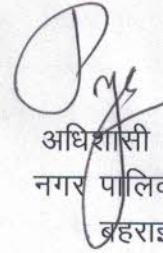 अधिशासी
नगर पालिक
बहराइ